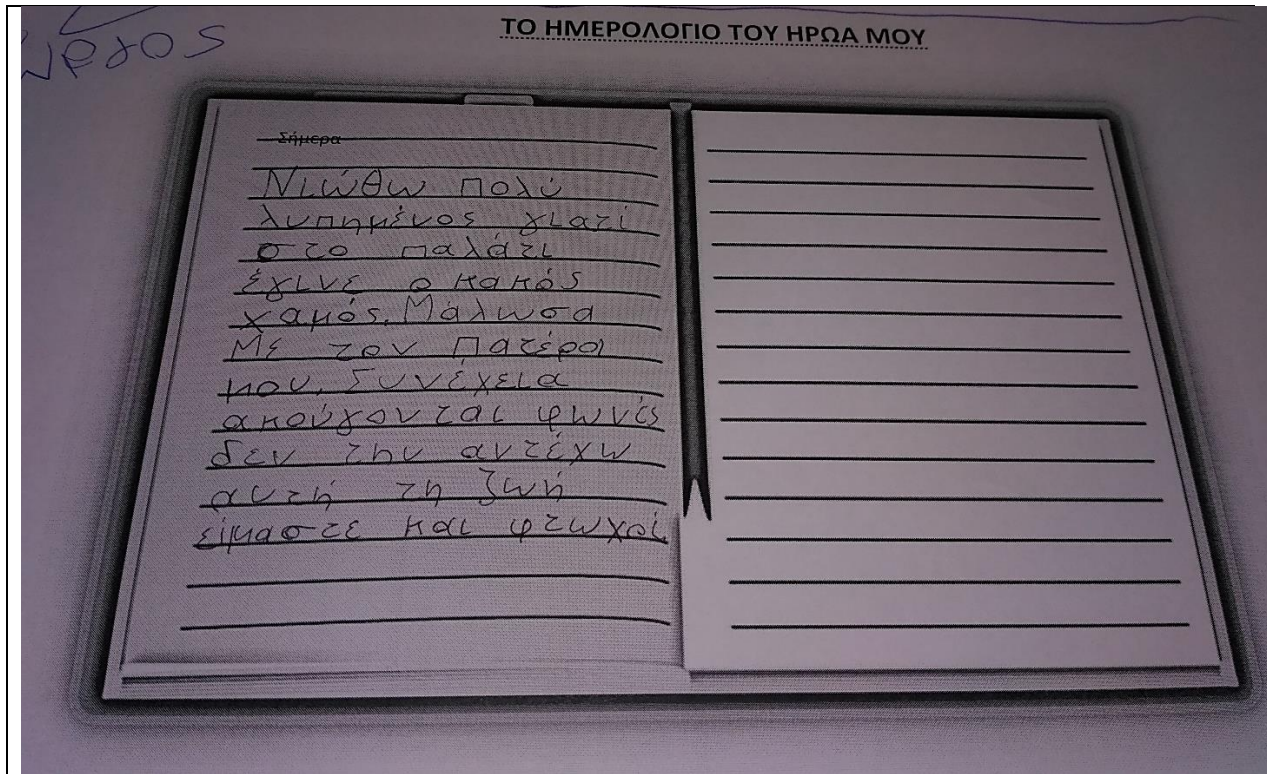 ΤΟ ΗΜΕΡΟΛΟΓΙΟ ΤΟΥ ΗΡΩΑ ΜΟΥ
Σήμερα
Νιώθω πολύ
λυπημένος γιατί
στο παλάτι
έγινε ο κακός
χαμός. Μάλωσα
Με τον Πατέρα
μου. Συνέχεια
ακούγονται φωνές
δεν την αντέχω
αυτή τη ζωή
είμαστε και φτωχοί